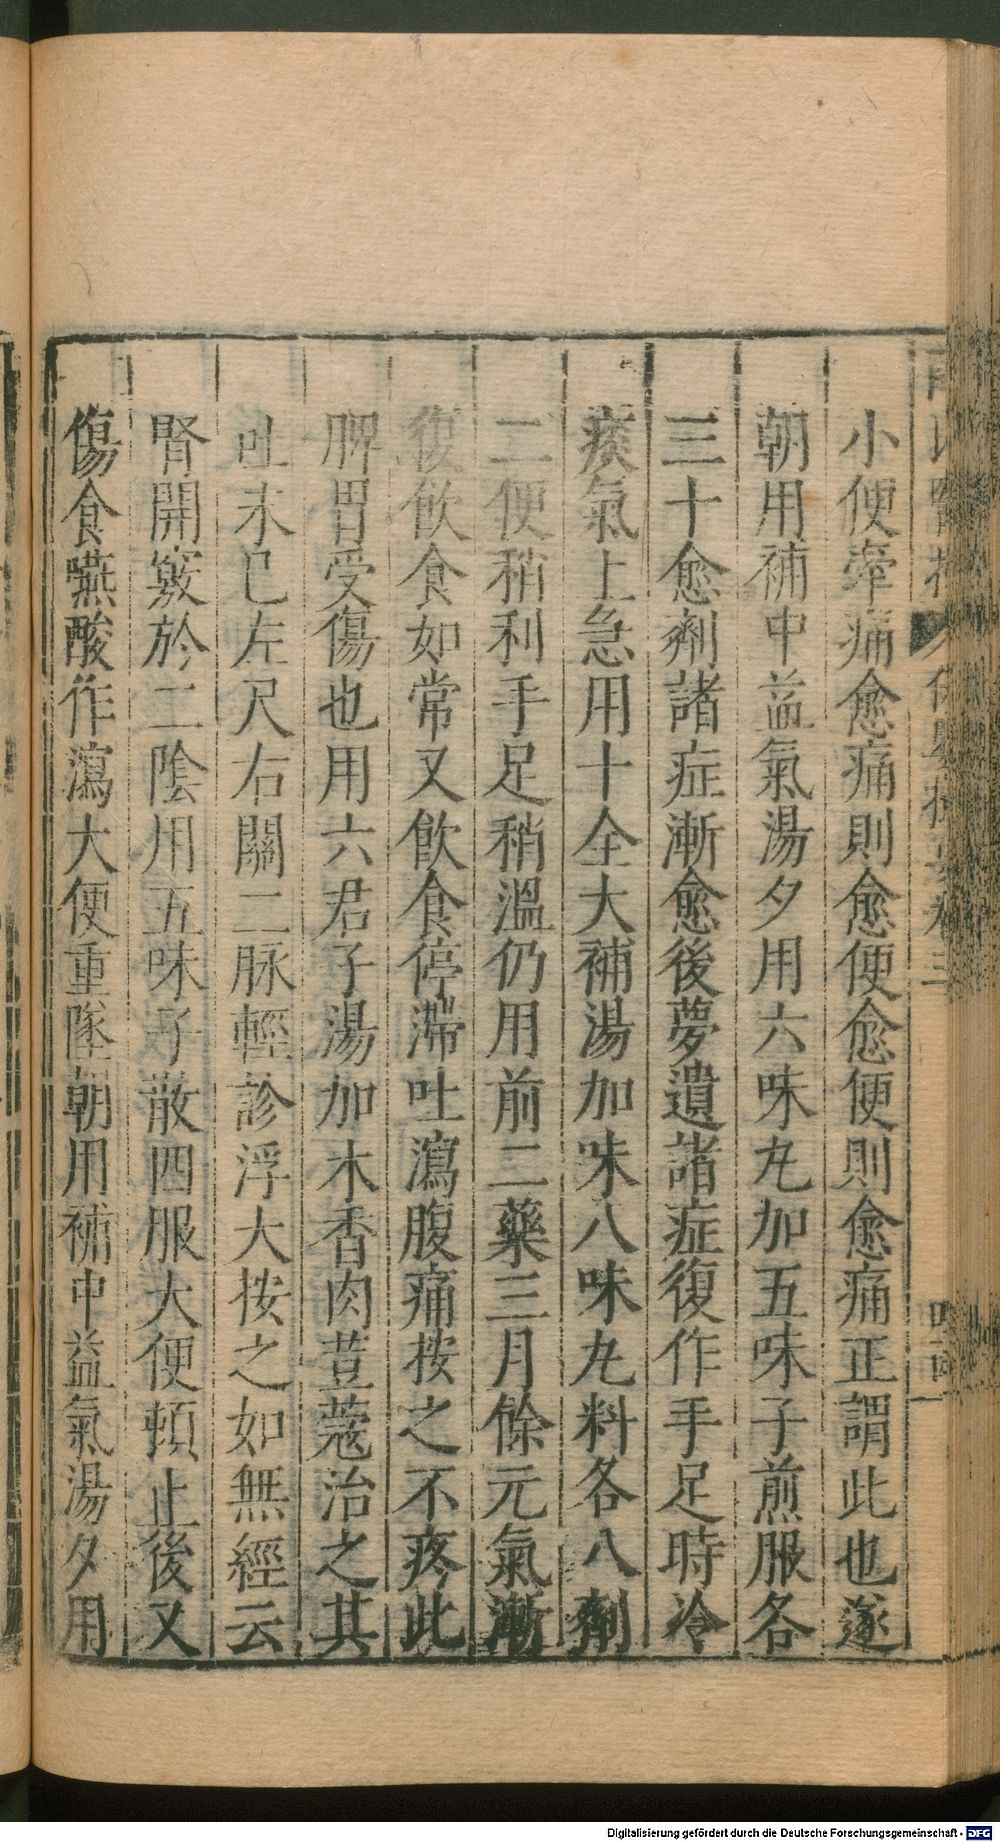 小便牽痛愈痛則愈便愈便則愈痛正謂此也遂
朝用補中益氣湯夕用六味丸加五味子煎服各
三十愈劑諸症漸愈後夢遺諸症復作手足時冷
痰氣上急用十全大補湯加味八味丸料各八劑
二便稍利手足稍溫仍用前二藥三月餘元氣漸
復飲食如常又飲食停滯吐瀉腹痛按之不疼此
脾胃受傷也用六君子湯加木香肉荳蔻治之其
吐未已左尺右關二脉輕診浮大按之如無經云
腎開竅於二陰用五味子散四服大便頓止後又
傷食嚥酸作瀉大便重墜朝用補中益氣湯夕用
Digitalisierung gefördert durch die Deutsche Forschungsgemeinschaft - DFG